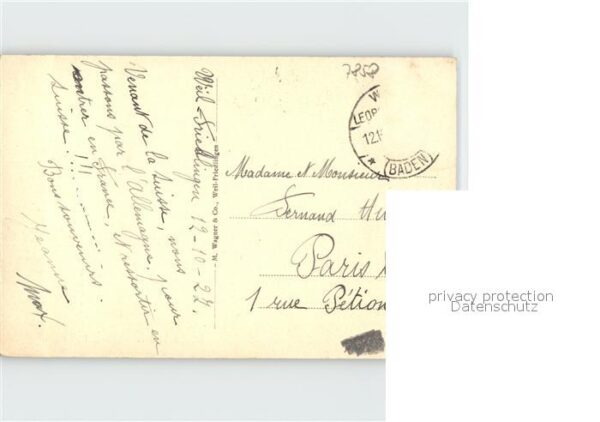 Weil-Friedlingen 12-10-22.
Venant de la Suisse, nous
passons par l'Allemagne, pour
rentrer en France, et ressortir en
Suisse !!!
Bons souvenirs.
Jeanne
Max.
M. Wagner & Co., Weil-Friedlingen
7858
W
LEOP
12.1
(BADEN)
Madame et Monsieur
Fernand Hu
Paris
1 rue Pétion
privacy protection
Datenschutz